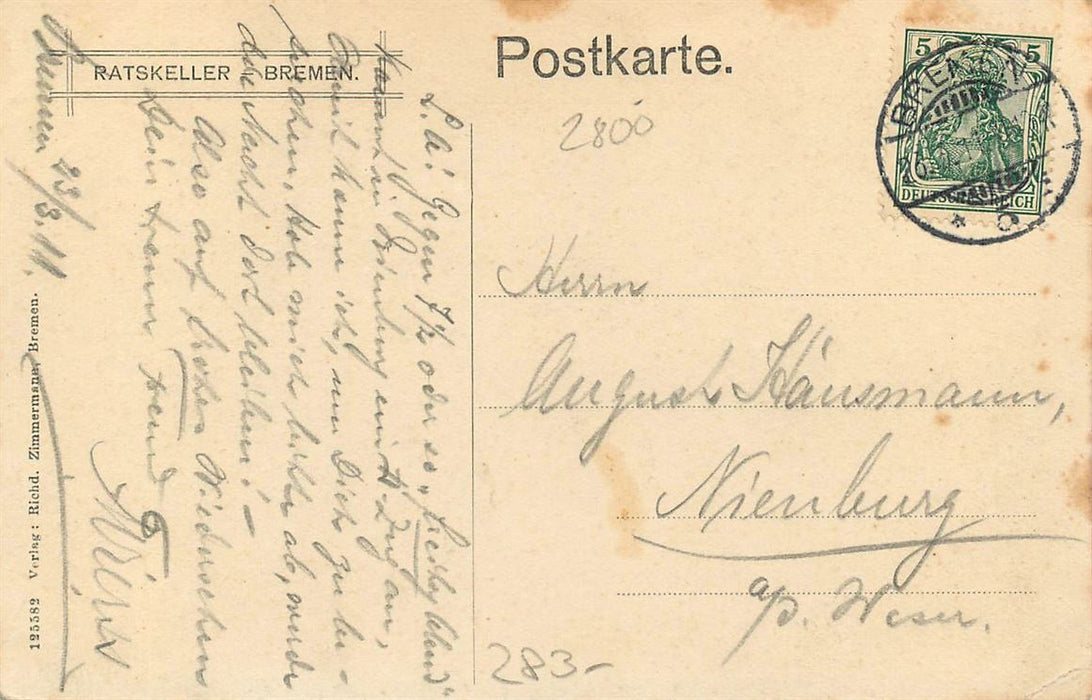 RATSKELLER BREMEN.
Postkarte.
5 5
BREMEN
DEUTSCHES REICH
2800
Bremen 23/3.11.
L. A! Gegen 7 1/2 oder so,
kommt in Nienburg ein Zug an,
damit komme ich, um Dich zu be-
suchen. Hole mich bitte ab, werde
die Nacht dort bleiben! –
Also auf frohes Wiedersehen
Dein treuer Freund
Herrn
August Häusmann,
Nienburg
a/d. Weser.
283-
125582 Verlag: Richd. Zimmermann, Bremen.